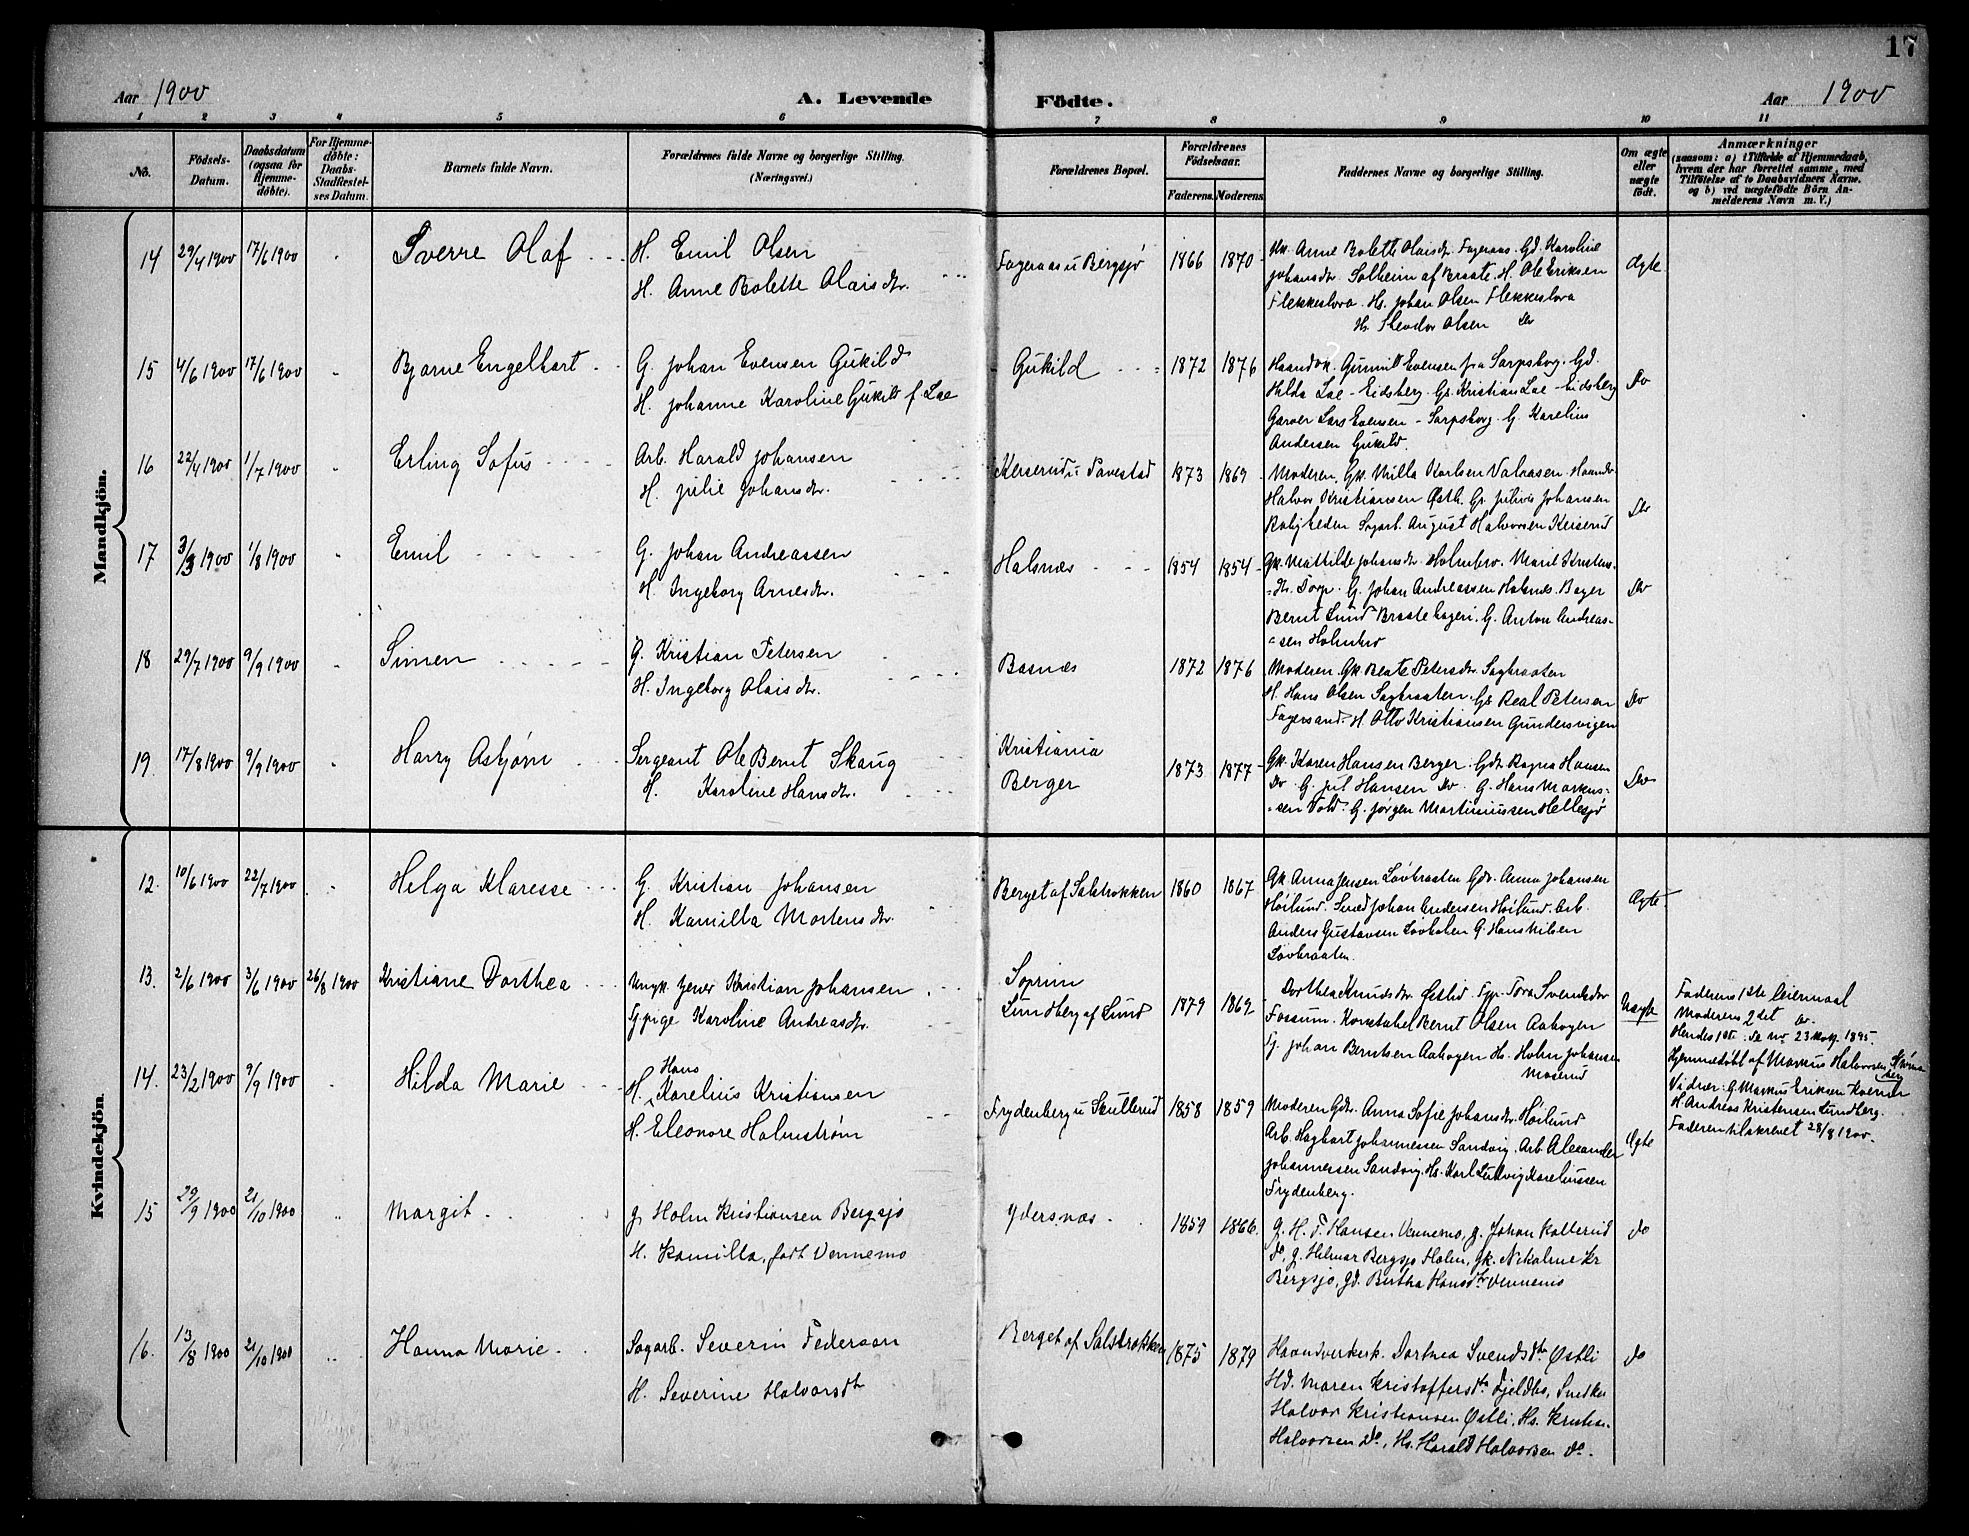 17
Aar 1900
A. Levende
Födte.
Aar 1900
1 2 3 4 5 6 7 8 9 10 11
No.
Födsels-
Datum.
Daabsdatum
(ogsaa for
Hjemme-
döbte).
For Hjemme-
döbte:
Daabs-
Stadfæstel-
ses Datum.
Barnets fulde Navn.
Forældrenes fulde Navne og borgerlige Stilling.
(Næringsvei.)
Forældrenes Bopæl.
Forældrenes
Födselsaar.
Faderens. Moderens.
Faddernes Navne og borgerlige Stilling.
Om ægte
eller
uægte
födt.
Anmærkninger
(saasom: a) i Tilfælde af Hjemmedaab,
hvem der har forrettet samme, med
Tilföielse af to Daabsvidners Navne.
og b) ved uægtefödte Börn An-
melderens Navn m. V.)
Mandkjön.
14 29/4 1900 17/6 1900 Sverre Olaf
H. Emil Olsen
H. Anne Bolette Olaisdtr.
Fageraas u Bergsjø 1866 1870
Gk. Anne Bolette Olaisdtr. Fageraas. Gd. Karoline
Johansdtr. Solheim af Braate. H. Ole Eriksen
Flekkeslora. Hs. Johan Olsen Flekkeslora
Hs. Theodor Olsen Do
Ægte
15 4/6 1900 17/6 1900 Bjarne Engelhart
G. Johan Evensen Gukild
H. Johanne Karoline Gukild f. Lae
Gukild 1872 1876
Haandvk. Gunnild Evensen fra Sarpsborg. Gd.
Hilda Lae - Eidsberg. Gs. Kristian Lae - Eidsberg
Garver Lars Evensen - Sarpsborg. G. Karelius
Andersen Gukild.
Do
16 22/4 1900 1/7 1900 Erling Sofus
Arb. Harald Johansen
H. Julie Johansdtr.
Keiserud u Tavestad 1873 1869
Moderen, Gk. Milla Karlsen Valaasen. Haandv.
Halvor Kristiansen Østli. Gs. Julius Johansen
Roligheden Sagarb. August Halvorsen Keiserud
Do
17 3/3 1900 1/8 1900 Emil
G. Johan Andreassen
H. Ingeborg Arnesdtr.
Halsnæs 1854 1854
Gk. Mathilde Johansdtr. Holmbro. Marie Kristens-
Torp. G. Johan Andreassen Halsnæs. Bager
Bernt Lund Braatehagen. G. Anton Andreas-
sen Holmbro
Do
18 29/7 1900 9/9 1900 Simen
G. Kristian Petersen
H. Ingeborg Olaisdtr.
Basnæs 1872 1876
Moderen. Gk. Beate Petersdtr. Sagbraaten
H. Hans Olsen Sagbraaten. Gs. Real Petersen
Fagersand. H. Otto Kristiansen Gundersvigen
Do
19. 17/8 1900 9/9 1900 Harry Asbjørn
Sergeant Ole Bernt Skaug
H. Karoline Hansdtr.
Kristiania
Berger
1873 1877
Gk. Karen Hansen Berger. Gdt. Ragna Hansen
Do. G. Jul Hansen Do. G. Hans Markus-
sen Vold. G. Jørgen Martiniussen Hellesjø
Do
Kvindekjön.
12. 10/6 1900 22/7 1900 Helga Klaresse
G. Kristian Johansen
H. Kamilla Mortensdtr.
Berget af Salstrokken 1860 1867
Gk. Anna Jensen Løvbraaten Gdr. Anna Johansen
Høilund. Smed Johan Andersen Høilund. Arb.
Anders Gustavsen Løvbraaten G. Hans Nilsen
Løvbraaten.
Ægte
13. 2/6 1900 3/6 1900 26/8 1900 Kristiane Dorthea
Ungk. Kristian Johansen
Tj. pige Karoline Andreasdtr.
Soprim
Lundberg af Lund 1879 1869
Dorthea Knudsdtr Østlid. Tjp. Tora Svendsdtr
Fossum. Konstabel Bernt Olsen Aabogen
G. Johan Berntsen Aabogen Hs. Holm Johansen
Moserud
Uægte
Faderens 1ste Leiermaal
Moderens 2det do.
Hendes 1ste 1895.
Hjemmedøbt af Markus Halvorsen
Vidner: G. Markus Eriksen
H. Andreas Kristensen Lundberg.
Faderen tilskrevet 28/8 1900.
14. 23/2 1900 9/9 1900 Hilda Marie
Hans
H. Karelius Kristiansen
H. Eleonore Holmstrøm
Frydenberg u Skullerud 1858 1859
Moderen Gdt. Anna Sofie Johansdtr. Høilund
Arb. Hagbart Johannessen Sandvig. Arb. Alexander
Johannessen Sandvig. Hs. Karl Ludvig Kareliussen
Frydenberg.
Ægte
15 29/9 1900 21/10 1900 Margit
g. Holm Kristiansen Bergsjø
H. Kamilla, født Vennemo
Ydersnæs 1859 1866.
g. H. T. Hansen Vennemo, g. Johan Kolterud
do, g. Hilmar Bergsjø Holm, gk. Nikoline Kr
Bergsjø, gd. Bertha Hansdtr Vennemo
do
16. 13/8 1900 21/10 1900 Hanna Marie
Sagarb. Severin Pederson
H. Severine Halvorsdtr
Berget af Salstrokken 1875 1879
Haandverkerk. Dorthea Svendsdtr Østli
Hd. Maren Kristoffersdtr Fjeldbo, Snedker
Halvor Kristiansen Østli, Hs. Kristian
Halvorsen do, Hs. Harald Halvorsen do.
do